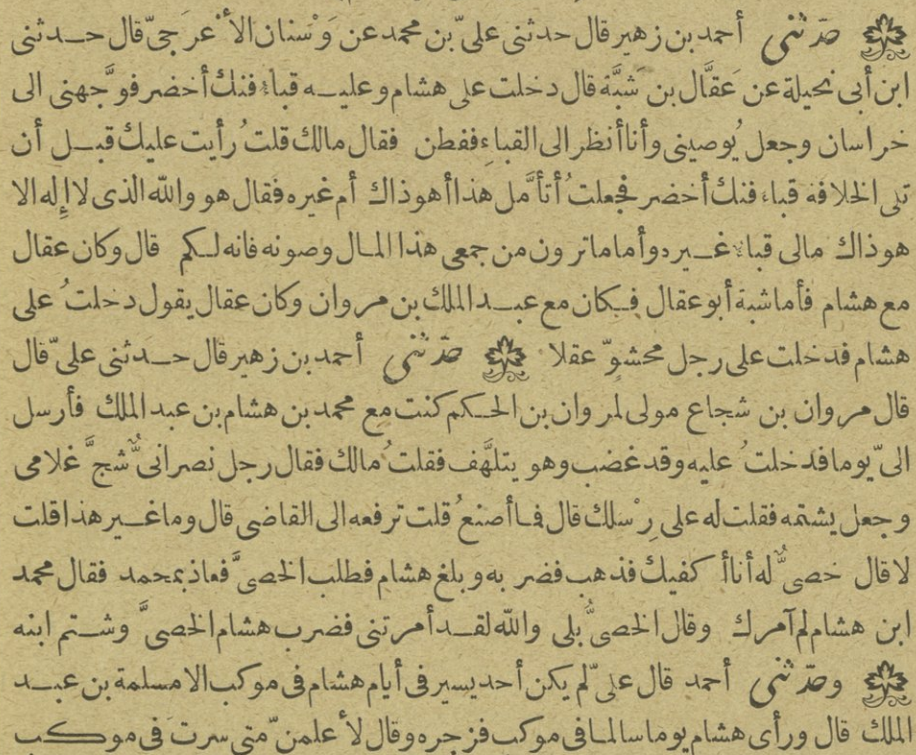 حدثنى أحمد بن زهير قال حدثنى علىّ بن محمد عن وَسْنان الأعرجىّ قال حـدثنى
ابن أبى نحيلة عن عَقَّال بن شَبَّة قال دخلت على هشام وعليـه قباء فنك أخضر فوجَّهنى الى
خراسان وجعل يُوصينى وأنا أنظر الى القباء ففطن فقال مالك قلتُ رأيت عليك قبـل أن
تلى الخلافة قباء فنك أخضر فجعلتُ أتأمّل هذا أهو ذاك أم غيره فقال هو والله الذى لا إله الا
هو ذاك مالى قباء غـيره وأما ماترون من جمعى هذا المـال وصونه فانه لـكم قال وكان عقال
مع هشام فأما شبة أبو عقال فـكان مع عبـد الملك بن مروان وكان عقال يقول دخلتُ على
هشام فدخلت على رجل محشوّ عقلا حدثنى أحمد بن زهير قال حـدثنى علىّ قال
قال مروان بن شجاع مولى لمروان بن الحـكم كنت مع محمد بن هشام بن عبد الملك فأرسل
الىّ يوما فدخلتُ عليه وقد غضب وهو يتلهَّف فقلتُ مالك فقال رجل نصرانىٌّ شجَّ غلامى
وجعل يشتمه فقلت له على رِسْلك قال فـا أصنعُ قلت ترفعه الى القاضى قال وما غـير هذا قلت
لا قال خصىٌّ له أنا أكفيك فذهب فضربه وبلغ هشام فطلب الخصىَّ فعاذ بمحمد فقال محمد
ابن هشام لم آمرك وقال الخصىُّ بلى والله لقـد أمرتنى فضرب هشام الخصىَّ وشـتم ابنه
وحدثنى أحمد قال علىّ لم يكن أحد يسير فى أيام هشام فى موكب الا مسلمة بن عبـد
الملك قال ورأى هشام يوما سالمـا فى موكب فزجره وقال لأعلمنّ متى سرتَ فى موكـب